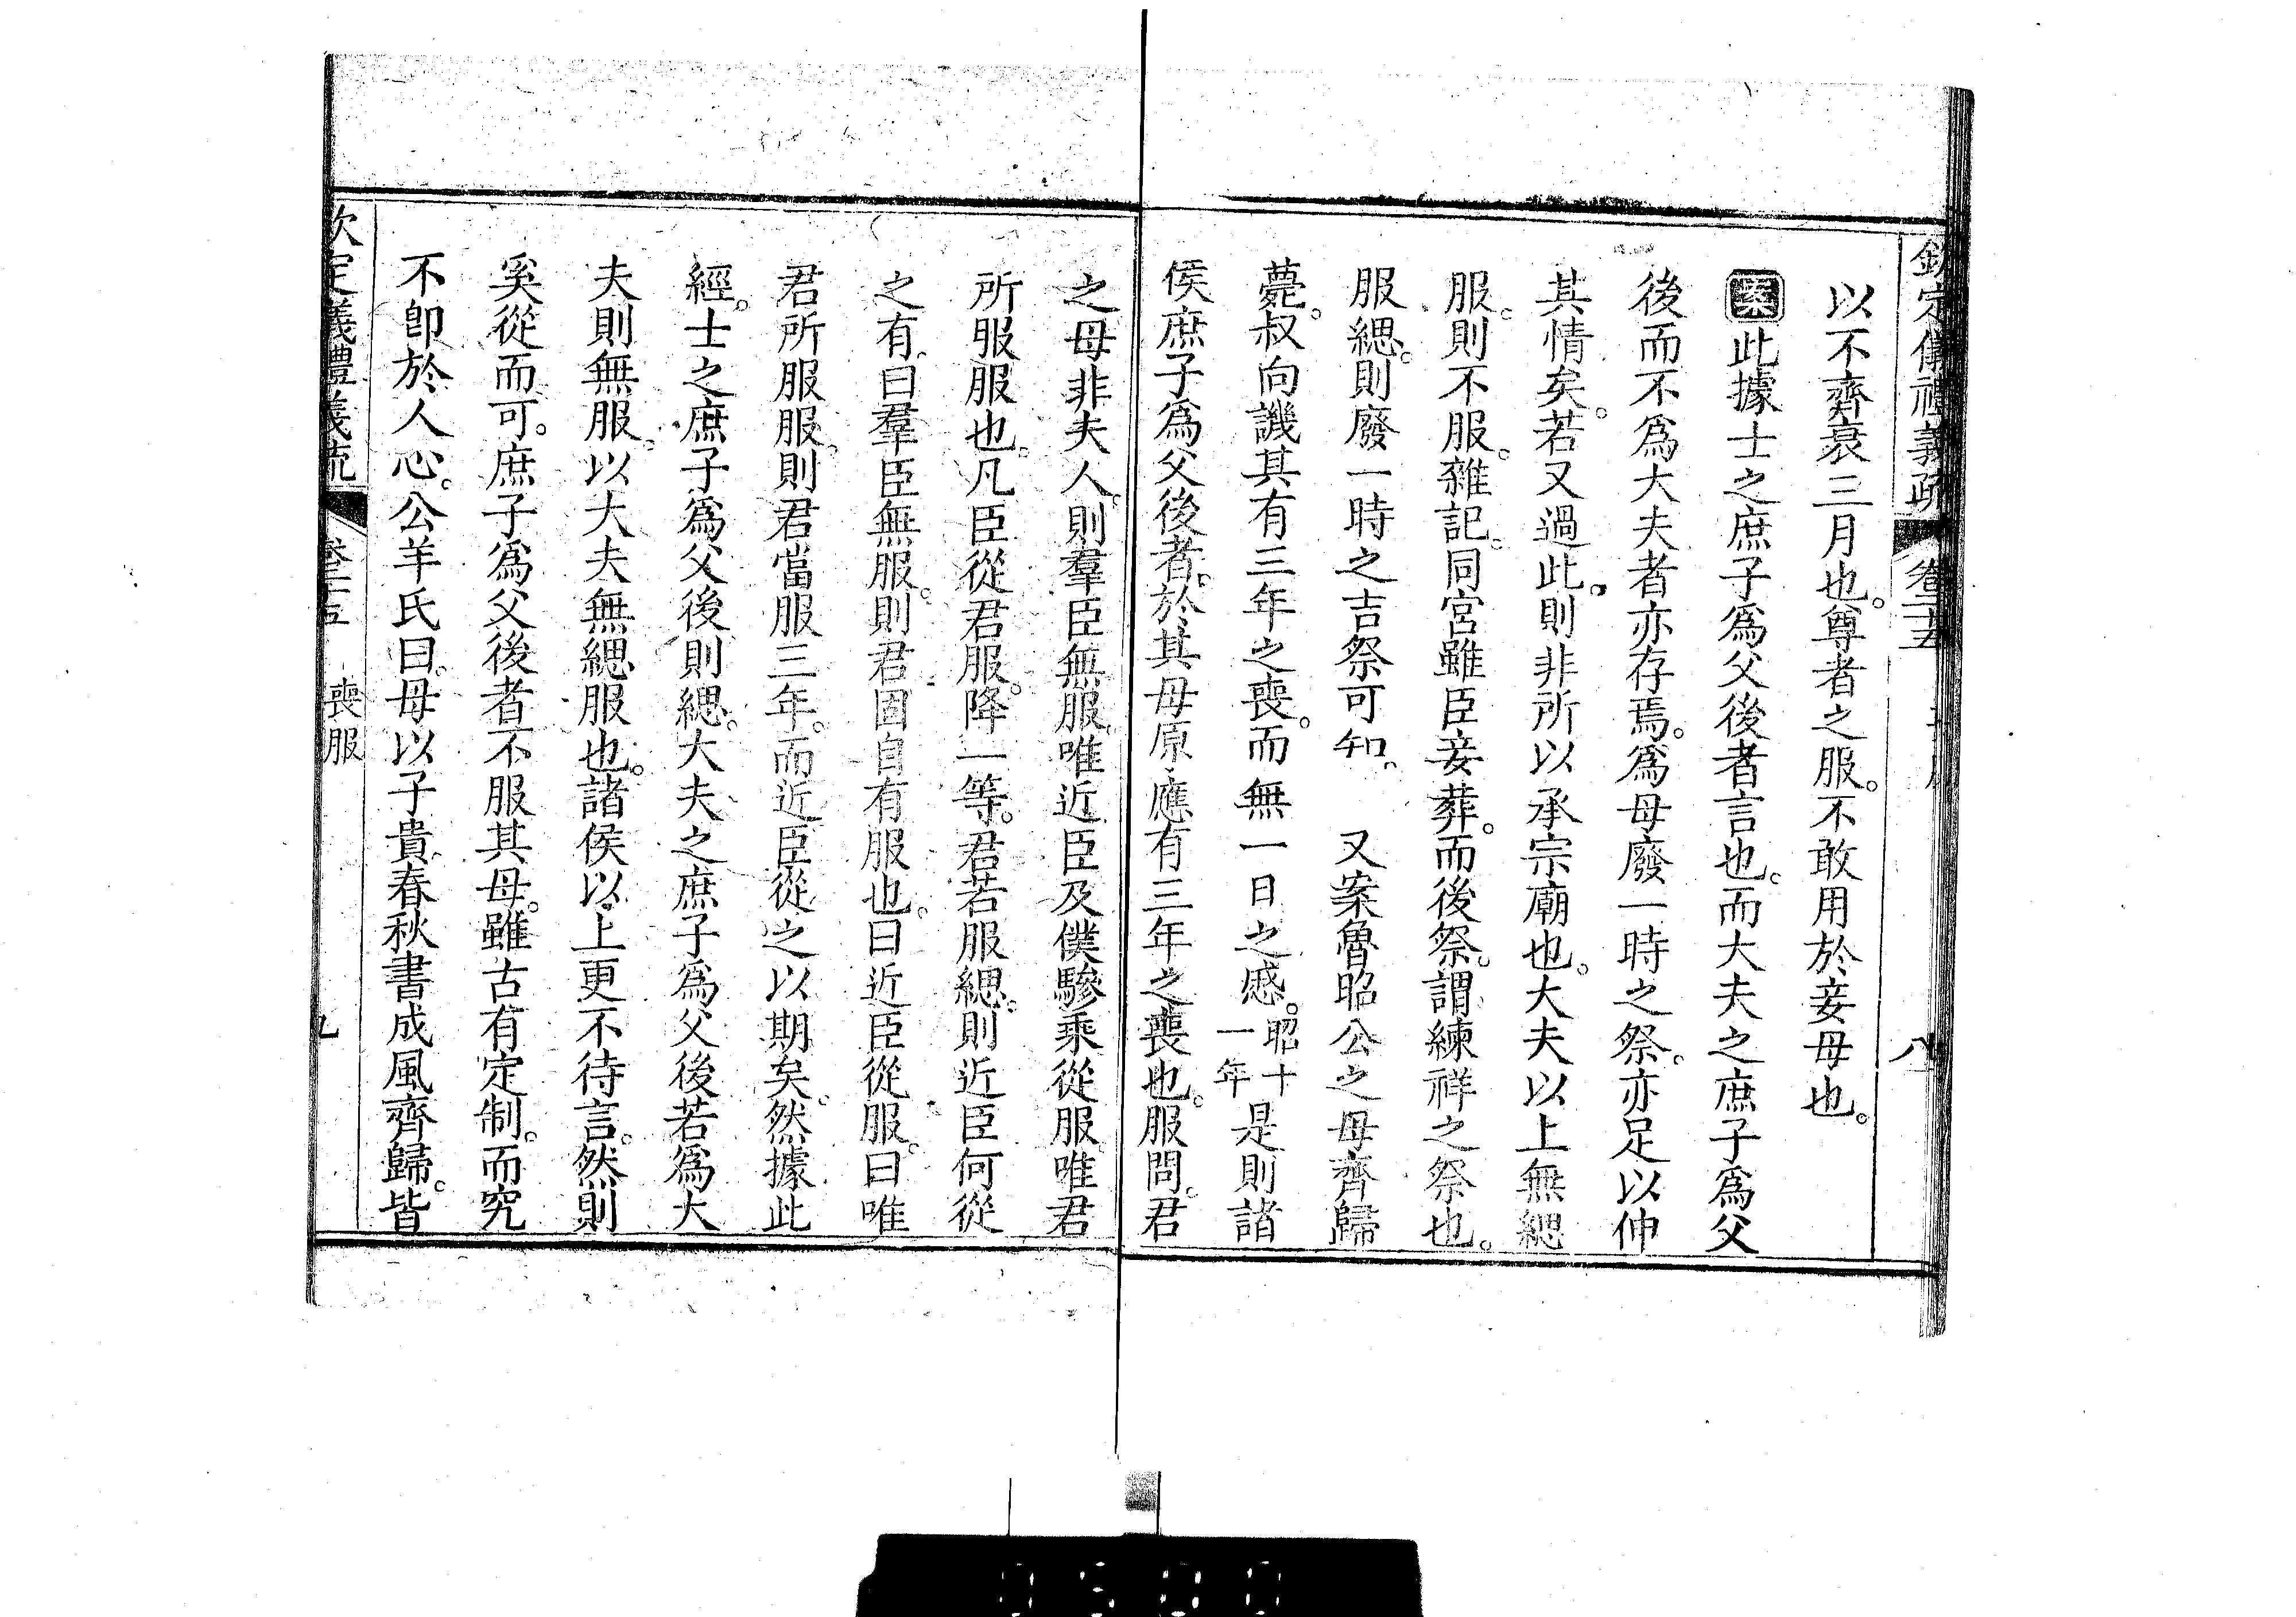 欽定儀禮義疏 卷二十五 八
以不齊衰三月也。尊者之服。不敢用於妾母也。
案此據士之庶子為父後者言也。而大夫之庶子為父
後而不為大夫者亦存焉。為母廢一時之祭。亦足以伸
其情矣。若又過此。則非所以承宗廟也。大夫以上無緦
服。則不服。雜記。同宮雖臣妾葬。而後祭。謂練祥之祭也。
服緦。則廢一時之吉祭可知。 又案魯昭公之母齊歸
薨。叔向譏其有三年之喪。而無一日之慼。昭十一年是則諸
侯庶子為父後者。於其母原應有三年之喪也。服問。君
之母非夫人。則羣臣無服。唯近臣及僕驂乘從服。唯君
所服服也。凡臣從君服。降一等。君若服緦。則近臣何從
之有。曰羣臣無服。則君固自有服也。曰近臣從服。曰唯
君所服服。則君當服三年。而近臣從之以期矣。然據此
經。士之庶子為父後則緦。大夫之庶子為父後若為大
夫則無服。以大夫無緦服也。諸侯以上更不待言。然則
奚從而可。庶子為父後者不服其母。雖古有定制。而究
不卽於人心。公羊氏曰。母以子貴。春秋書成風齊歸。皆
欽定義禮義疏 卷二十五 喪服 九